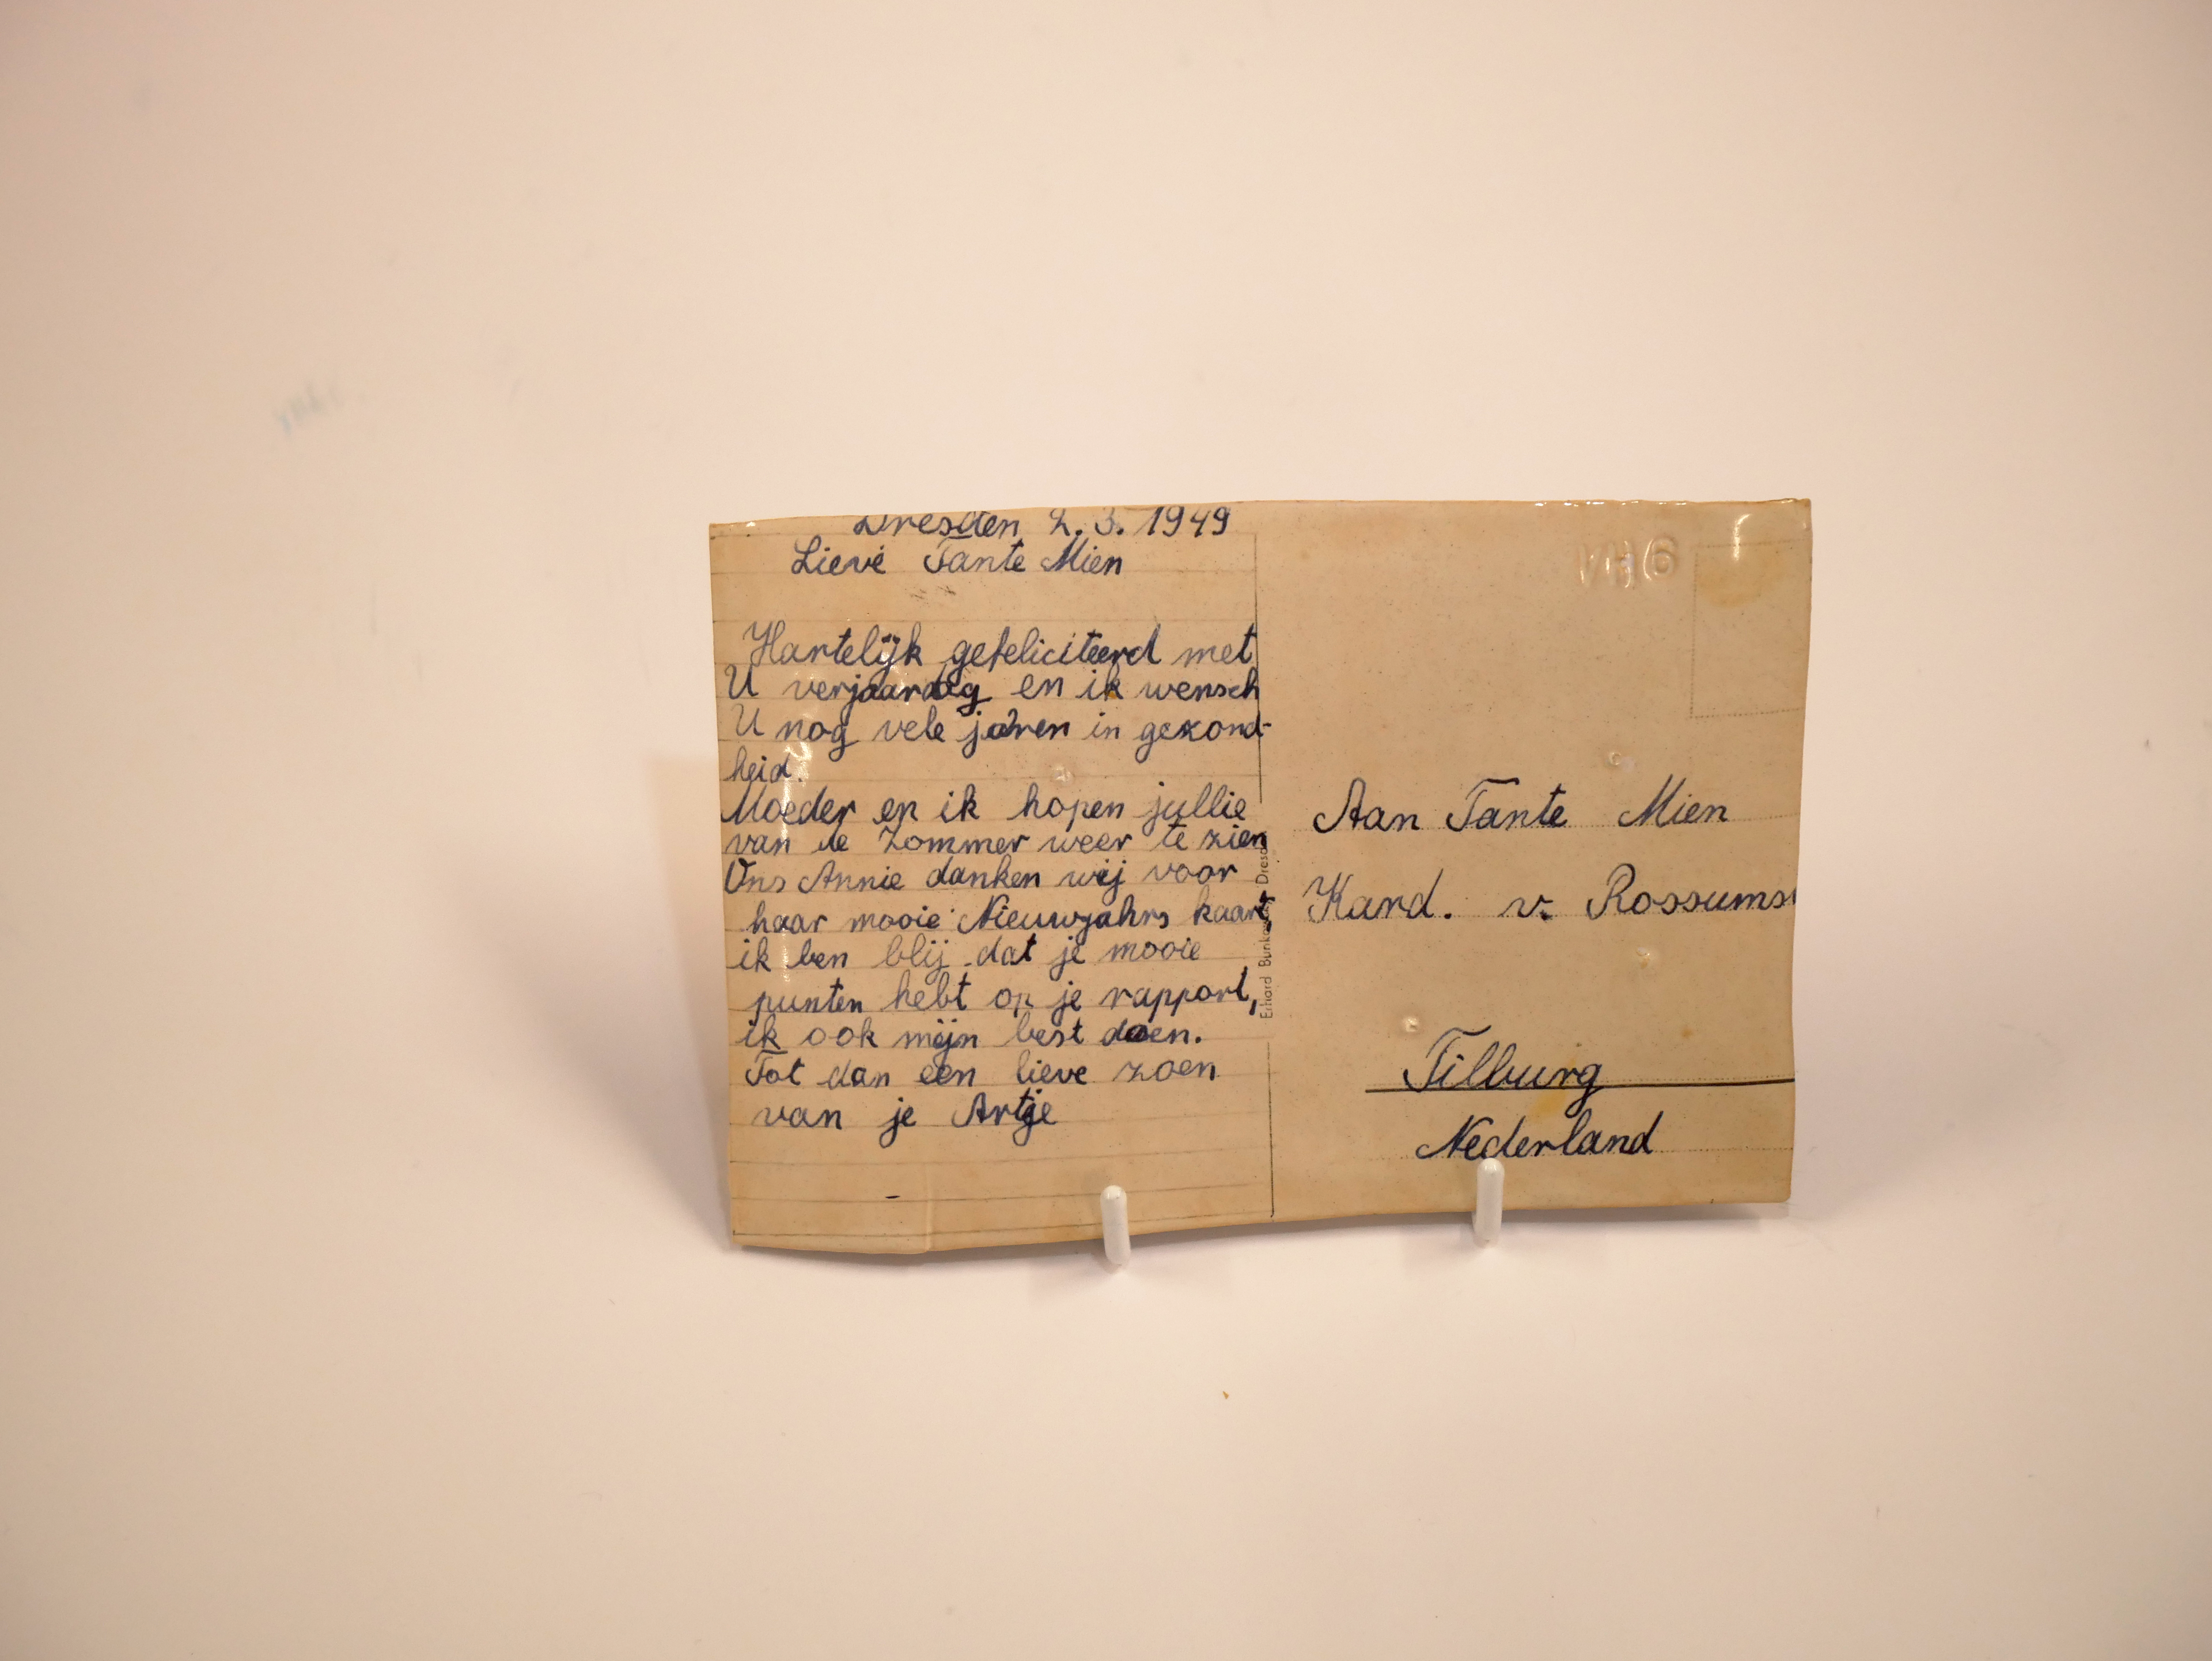 Dresden 2.3.1949
Lieve Tante Mien
Hartelijk gefeliciteerd met
U verjaardag en ik wensch
U nog vele jaren in gezond-
heid.
Moeder en ik hopen jullie
van de Zommer weer te zien
Ons Annie danken wij voor
haar mooie Nieuwjahrs kaart,
ik ben blij dat je mooie
punten hebt op je rapport,
ik ook mijn best doen.
Tot dan een lieve zoen
van je Artje
Erhard
VH6
Aan Tante Mien
Kard. v. Rossums
Tilburg
Nederland